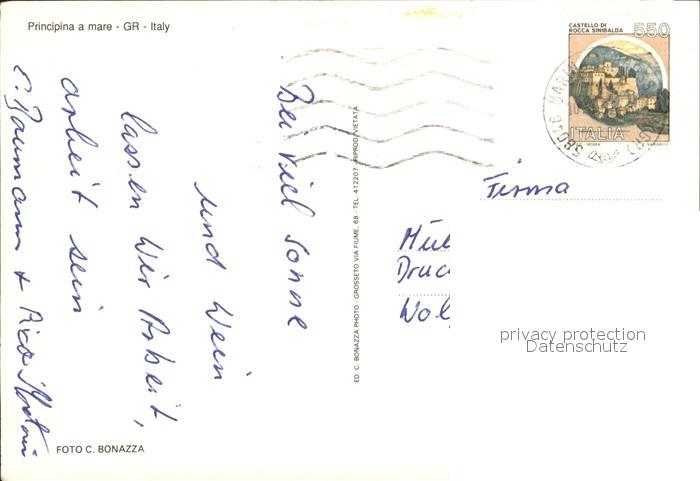 Principina a mare - GR - Italy
CASTELLO DI
ROCCA SINIBALDA
550
ITALIA
ROMA
58046 MARINA
Bei viel Sonne
und Wein
lassen wir Arbeit,
Arbeit sein
E. Baumann +
ED. C. BONAZZA PHOTO - GROSSETO VIA FIUME, 68 - TEL. 412207 - RIPROD. VIETATA
Firma
Mül
Druc
Wol
privacy protection
Datenschutz
FOTO C. BONAZZA